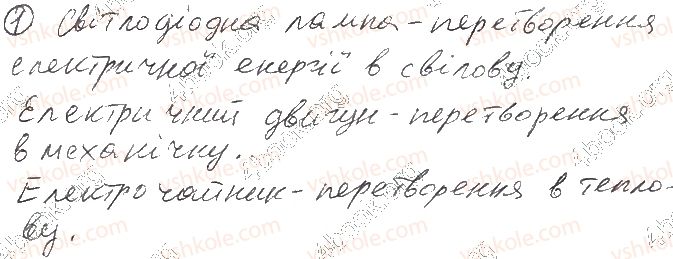 ① Світлодіодна лампа - перетворення
електричної енергії в свілову.
Електричний двигун - перетворення
в механічку.
Електрочайник - перетворення в тепло-
ву.